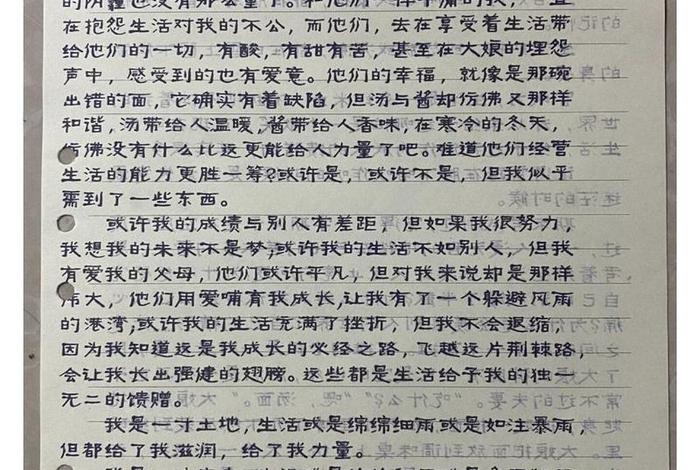 在抱怨生活对我的不公，而他们，去在享受着生活带
给他们的一切，有酸，有甜有苦，甚至在大娘的埋怨
声中，感受到的也有爱意。他们的幸福，就像是那碗
出错的面，它确实有着缺陷，但汤与酱却仿佛又那样
和谐，汤带给人温暖，酱带给人香味，在寒冷的冬天，
仿佛没有什么比这更能给人力量了吧。难道他们经营
生活的能力更胜一筹?或许是，或许不是，但我似乎
需到了一些东西。
或许我的成绩与别人有差距，但如果我很努力，
我想我的未来不是梦;或许我的生活不如别人，但我
有爱我的父母，他们或许平凡，但对我来说却是那样
伟大，他们用爱哺育我成长，让我有了一个躲避风雨
的港湾;或许我的生活充满了挫折，但我不会退缩，
因为我知道这是我成长的必经之路，飞越这片荆棘路，
会让我长出强健的翅膀。这些都是生活给予我的独一
无二的馈赠。
我是一寸土地，生活或是绵绵细雨或是如注暴雨，
但都给了我滋润，给了我力量。